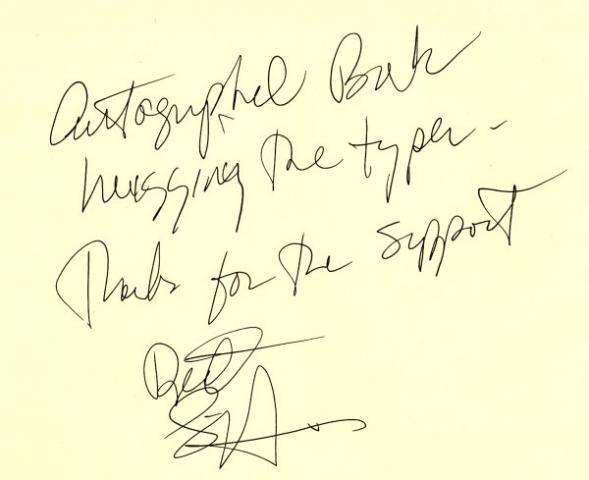 Autographed Book
hugging the typer -
Thanks for the support
Best